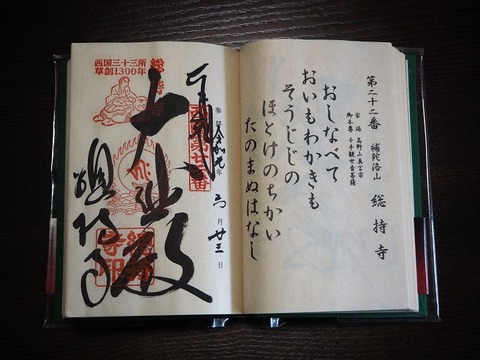 第二十二番 補陀洛山 総持寺
宗派 高野山真言宗
御本尊 千手観世音菩薩
おしなべて
おいもわかきも
そうじじの
ほとけのちかい
たのまぬはなし
奉拝
大悲殿
総持寺
月
廿三日
西国三十三所
草創1300年
総持寺印